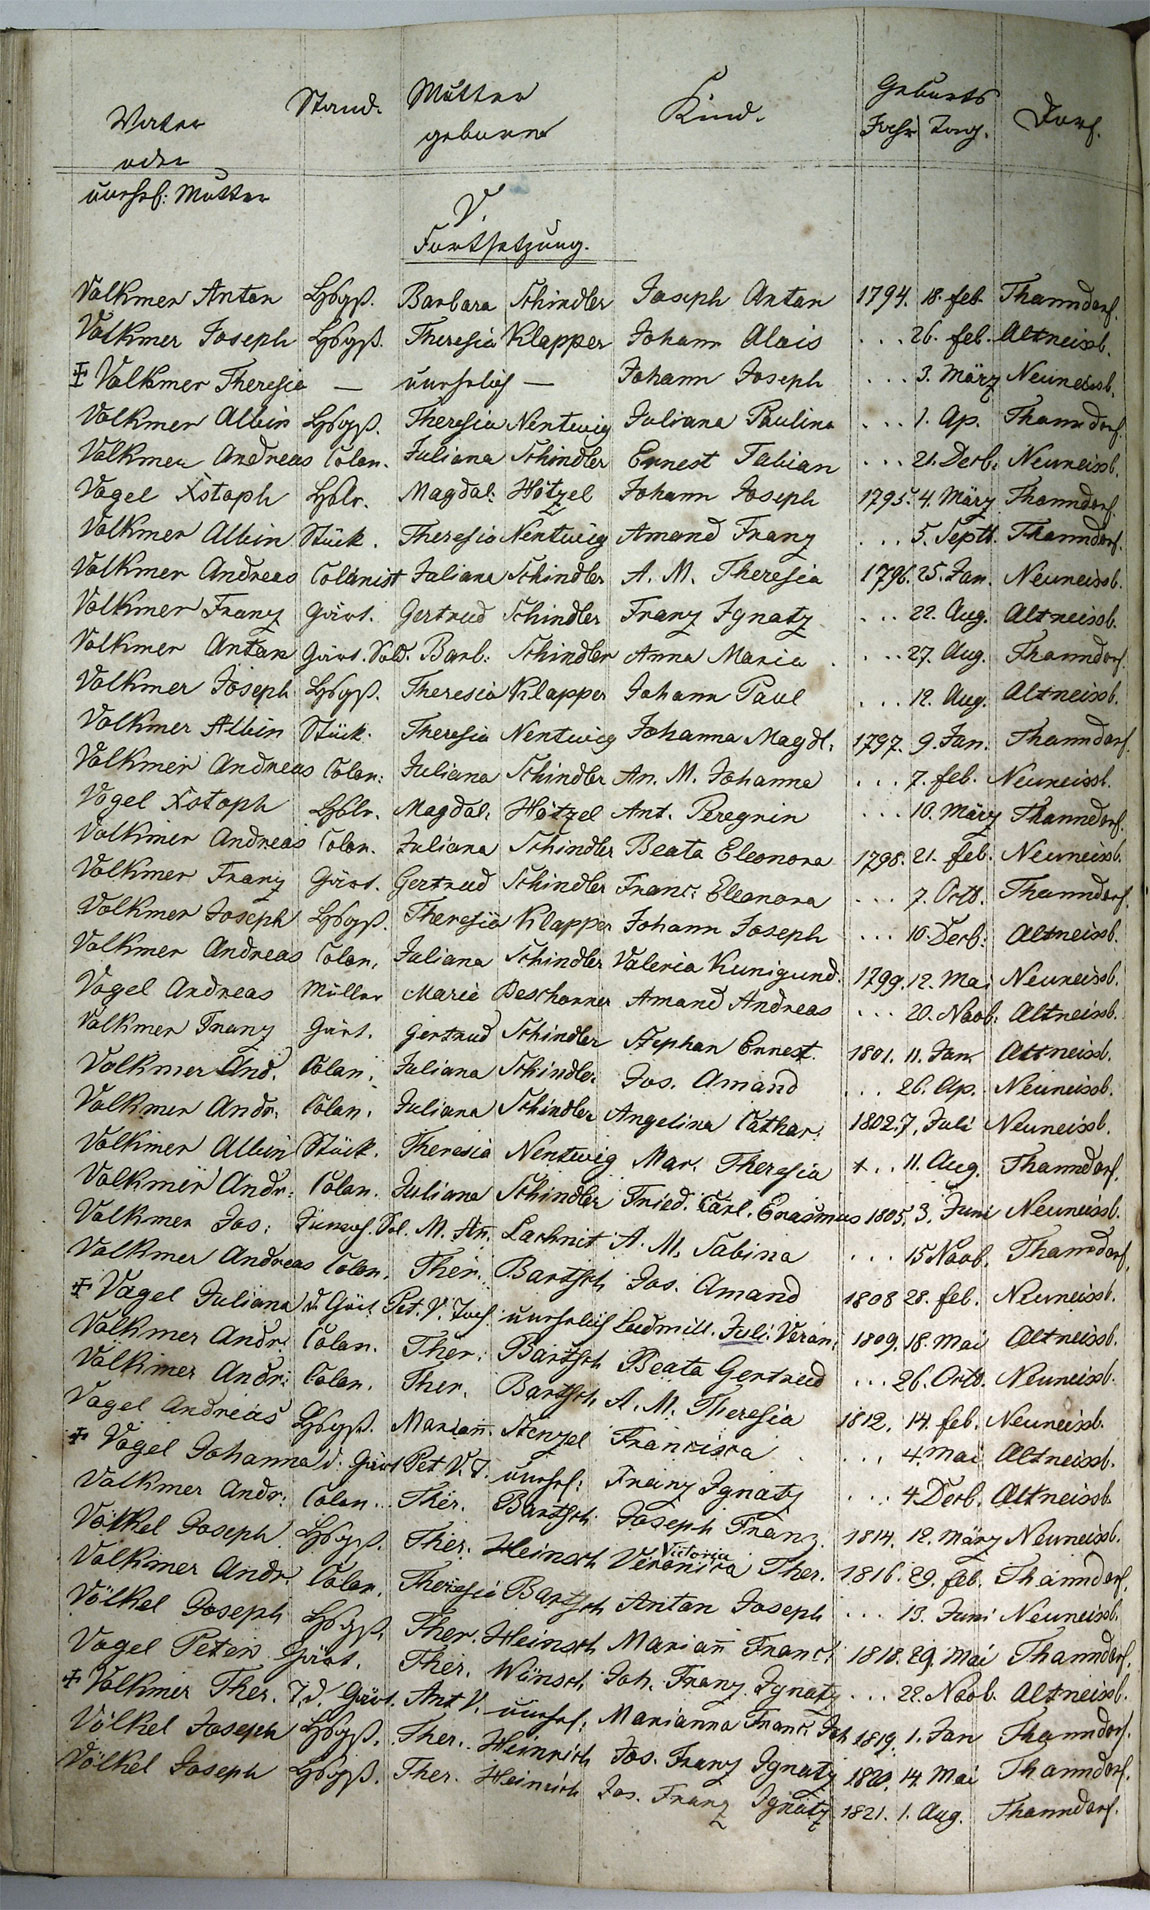 Vater oder unehel: Mutter
Stand.
Mutter geborne
Kind.
Geburts
Jahr Tag.
Dorf.
V.
Fortsetzung.
Volkmer Anton Hsbgß. Barbara Schindler Joseph Anton 1794. 18. feb. Thanndorf.
Volkmer Joseph Hsbgß. Theresia Klapper Johann Alois . . . 26. feb. Altneissb.
‡ Volkmer Theresia — unehelich — Johann Joseph . . . 3. März Neuneissb.
Volkmer Albin Hsbgß. Theresia Nentwig Juliana Paulina . . . 1. Ap. Thanndorf.
Volkmer Andreas Colon. Juliana Schindler Ernest Fabian . . . 21. Decb. Neuneissb.
Vogel Xstoph Hslr. Magdal: Hötzel Johann Joseph 1795. 4. März Thanndorf.
Volkmer Albin Stück. Theresia Nentwig Amand Franz . . . 5. Septb. Thanndorf.
Volkmer Andreas Colonist Juliana Schindler A. M. Theresia 1796. 25. Jan. Neuneissb.
Volkmer Franz Gärt. Gertrud Schindler Franz Ignatz . . . 22. Aug. Altneissb.
Volkmer Anton Gärt. Sold. Barb: Schindler Anna Maria . . . 27. Aug. Thanndorf.
Volkmer Joseph Hsbgß. Theresia Klapper Johann Paul . . . 12. Aug. Altneissb.
Volkmer Albin Stück. Theresia Nentwig Johanna Magdl. 1797. 9. Jan. Thanndorf.
Volkmer Andreas Colon: Juliana Schindler An. M. Johanna . . . 7. feb. Neuneissb.
Vogel Xstoph Hslr. Magdal. Hötzel Ant. Peregrin . . . 10. März Thanndorf.
Volkmer Andreas Colon. Juliana Schindler Beata Eleonora 1798. 21. feb. Neuneissb.
Volkmer Franz Gärt. Gertrud Schindler Franc: Eleonora . . . 7. Octb. Thanndorf.
Volkmer Joseph Hsbgß. Theresia Klapper Johann Joseph . . . 10. Decb: Altneissb.
Volkmer Andreas Colon. Juliana Schindler Valeria Kunigund. 1799. 12. Mai Neuneissb.
Vogel Andreas Müller Marie Beschorner Amand Andreas . . . 20. Novb. Altneissb.
Volkmer Franz Gärt. Gertrud Schindler Stephan Ernest. 1801. 11. Jan. Altneissb.
Volkmer And. Colon. Juliana Schindler. Jos. Amand . . . 26. Ap. Neuneissb.
Volkmer Andr. Colon. Juliana Schindler Angelina Cathar. 1802. 7. Juli Neuneissb.
Volkmer Albin Stück. Theresia Nentwig Mar. Theresia + . . 11. Aug. Thanndorf.
Volkmer Andr: Colon. Juliana Schindler Fried. Carl. Erasmus 1805. 3. Juni Neuneissb.
Volkmer Jos: Sol. M. An. Lachnit A. M. Sabina . . . 15 Novb. Thanndorf.
Volkmer Andreas Colon. Ther. Bartsch Jos. Amand 1808 28. feb. Neuneissb.
‡ Vogel Juliana d. Gärt. Pet. V. Toch. unehelich Ludmill. Juli. Veron. 1809. 18. Mai Altneissb.
Volkmer Andr. Colon. Ther: Bartsch Beata Gertrud . . . 26. Octb. Neuneissb.
Volkmer Andr: Colon. Ther. Bartsch A. M. Theresia 1812. 14. feb. Neuneissb.
Vogel Andreas Hsbgß. Marian̄. Stenzel Francisca . . . 4. Mai Altneissb.
‡ Vogel Johanna d. Gärt Pet V. T. unehel: Franz Ignatz . . . 4 Decb. Altneissb.
Volkmer Andr: Colon. Ther. Bartsch Joseph Franz. 1814. 12. März Neuneissb.
Völkel Joseph Hsbgß. Ther. Heinsch Veronica Ther. 1816. 29. feb. Thanndorf.
Victoria
Volkmer Andr. Colon. Theresia Bartsch Anton Joseph . . . 13. Juni Neuneissb.
Völkel Joseph Hsbgß. Ther. Heinsch Marian̄ Franc: 1818. 29. Mai Thanndorf.
Vogel Peter Gärt. Ther. Wünsch Joh. Franz Ignatz . . . 22. Novb. Altneissb.
‡ Volkmer Ther. T. d. Gärt. Ant V. unehel: Marianna Franc: Joh 1819. 1. Jan Thanndorf.
Völkel Joseph Hsbgß. Ther. Heinrich Jos. Franz Ignatz 1820. 14. Mai Thanndorf.
Völkel Joseph Hsbgß. Ther. Heinrich Jos. Franz Ignatz 1821. 1. Aug. Thanndorf.